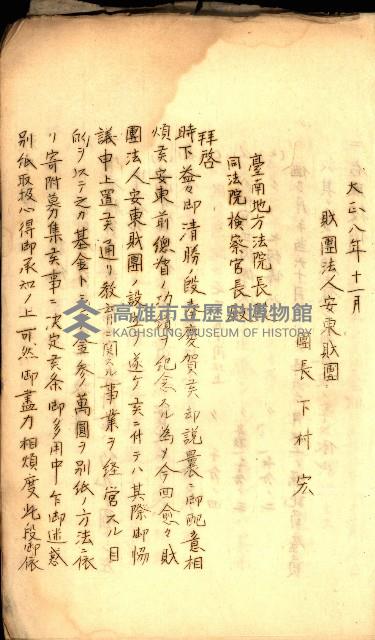 大正八年十一月
財團法人安東財團
團長 下村宏
臺南地方法院長
同法院検察官長 殿
拜啓
時下益々御清勝ノ段奉慶賀候却説曩ニ御配意相
煩候安東前總督ノ功績ヲ紀念スル為メ今回愈々財
團法人安東財團ノ設立ヲ遂ケ候ニ付テハ其際御協
議申上置候通リ教育ニ関スル事業ヲ経営スル目
的ヲ以テ之カ基金トシテ金参萬圓ヲ別紙ノ方法ニ依
リ寄附募集候事ニ決定候条御多用中乍御迷惑
別紙取扱心得御承知ノ上可然御盡力相煩度此段御依
高雄市立歷史博物館
KAOHSIUNG MUSEUM OF HISTORY